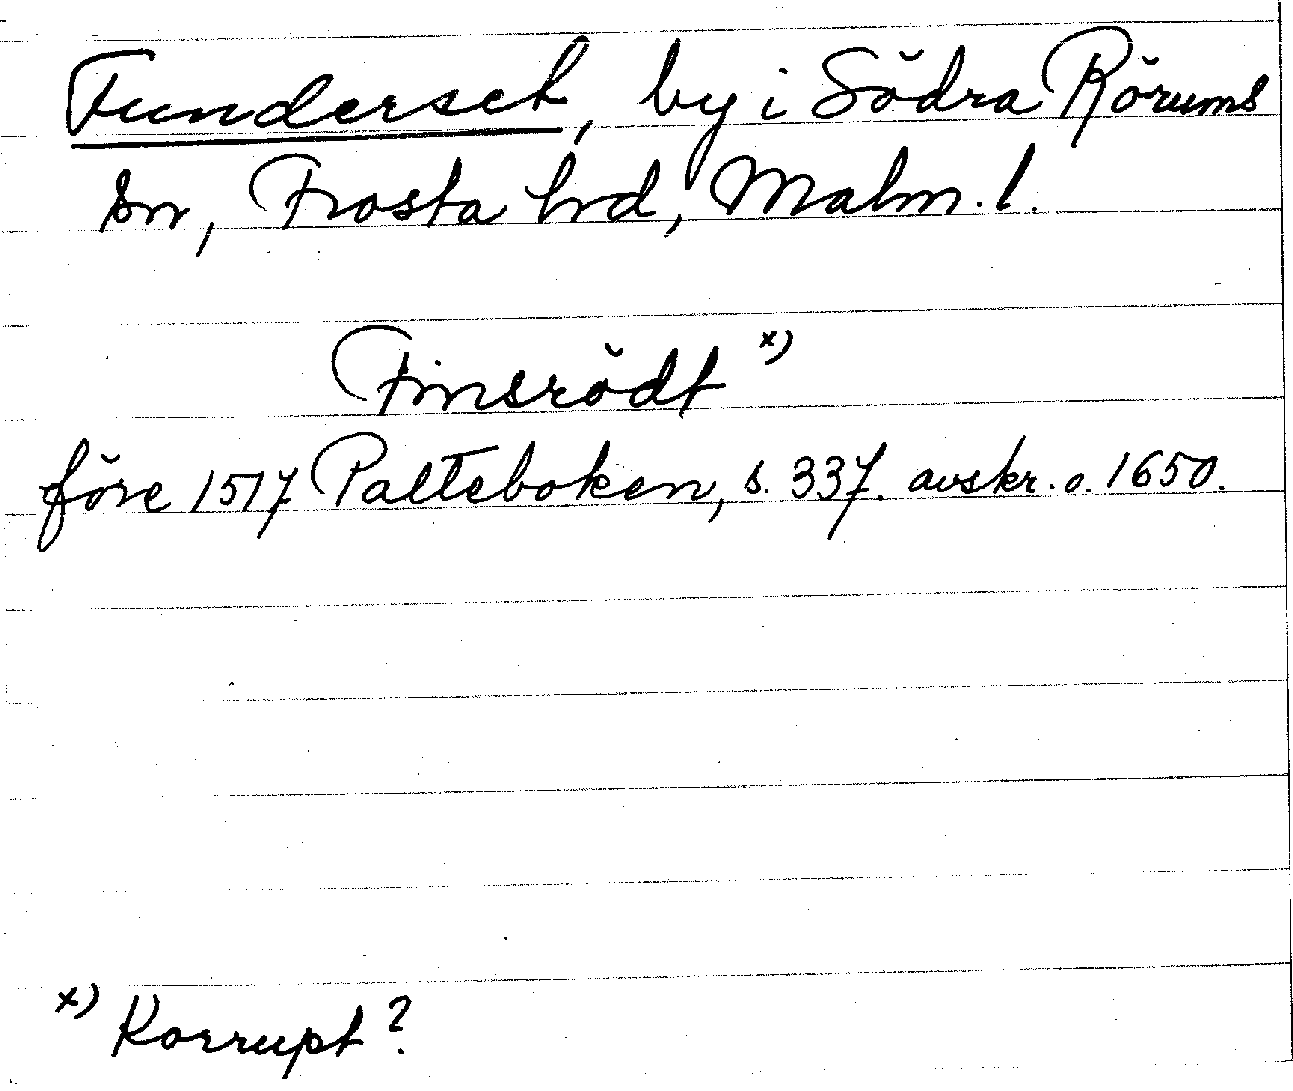 Funderset, by i Södra Rörums
sn, Frosta hrd, Malm. l.
Finsrödt x)
före 1517 Palteboken, s. 337. avskr. o. 1650.
x) Korrupt?